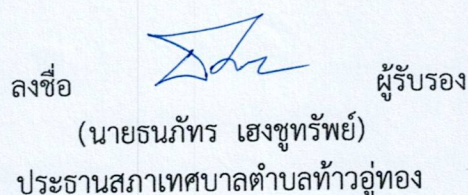 ลงชื่อ ผู้รับรอง
(นายธนภัทร เฮงชูทรัพย์)
ประธานสภาเทศบาลตำบลท้าวอู่ทอง